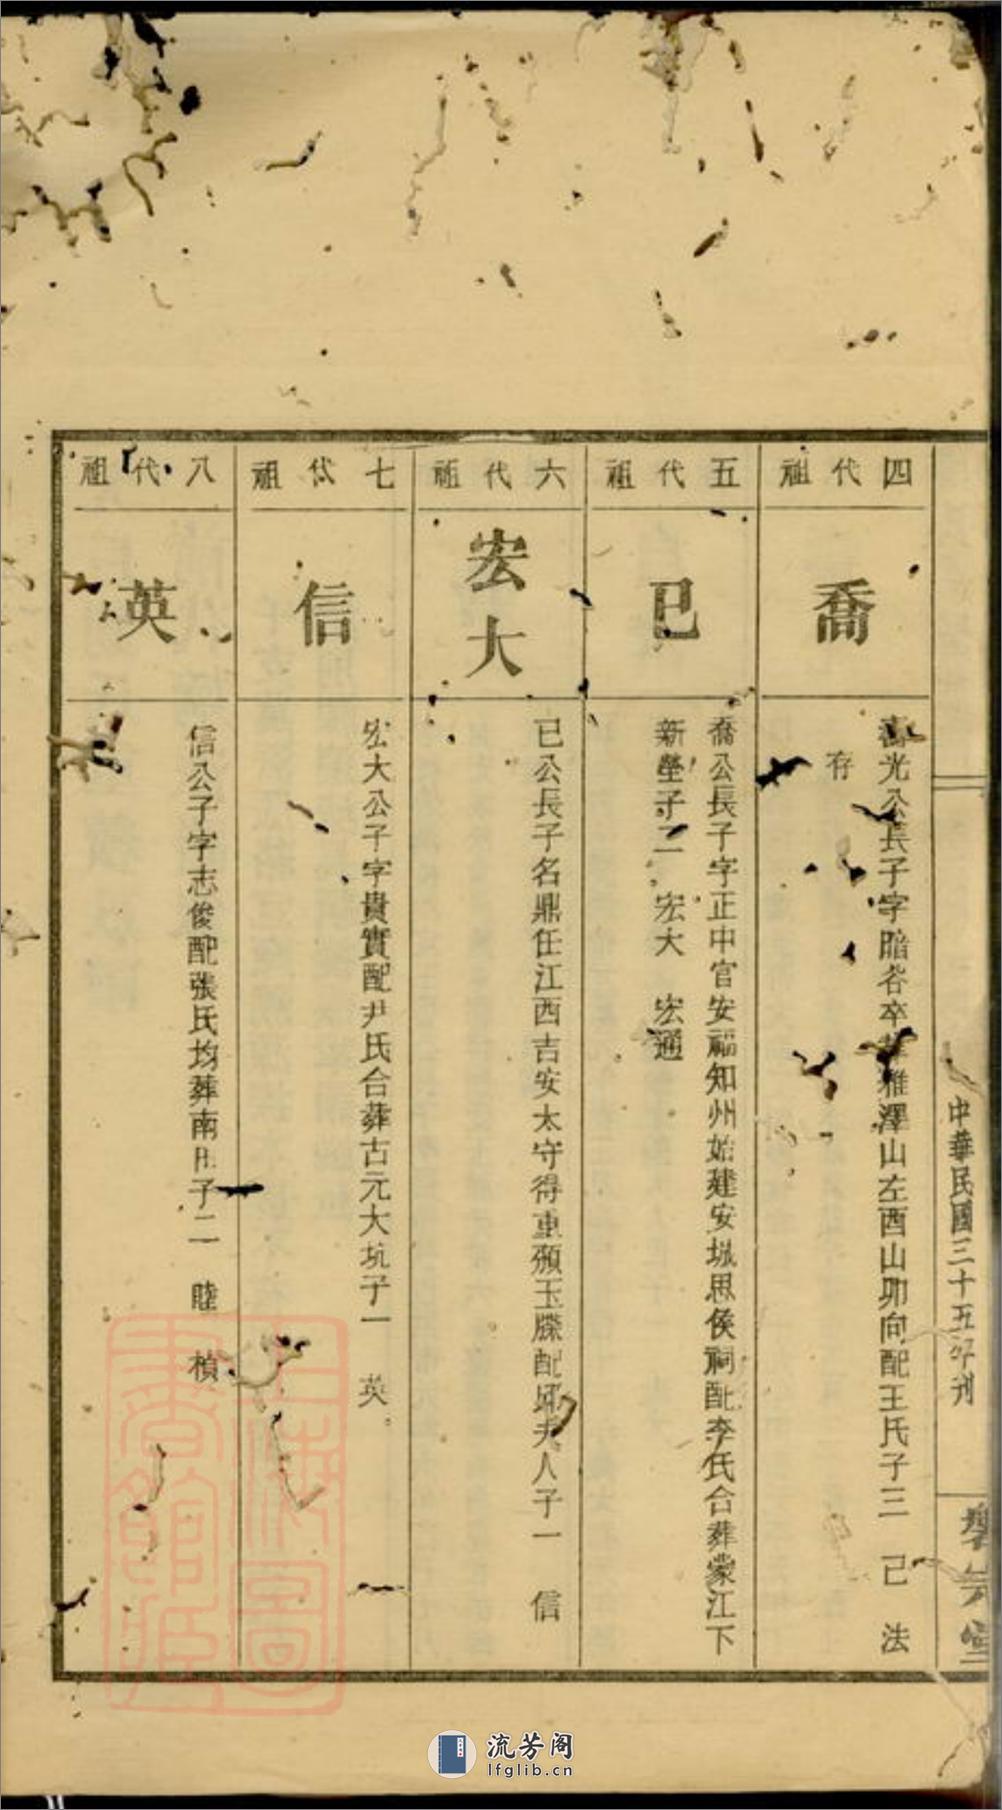 中華民國三十五年刊
四代祖
喬
光公長子字瞻谷卒葬雅澤山左酉山卯向配王氏子三 己 法
存
五代祖
巳
喬公長子字正中官安福知州始建安城思侯祠配李氏合葬蒙江下
新塋子二 宏大 宏通
六代祖
宏大
已公長子名鼎任江西吉安太守得重頒玉牒配邱夫人子一 信
七代祖
信
宏大公子字貴實配尹氏合葬古元大坑子一 英
八代祖
英
信公子字志俊配張氏均葬南子二 睦 楨
上海圖書館藏
流芳阁
lfglib.cn